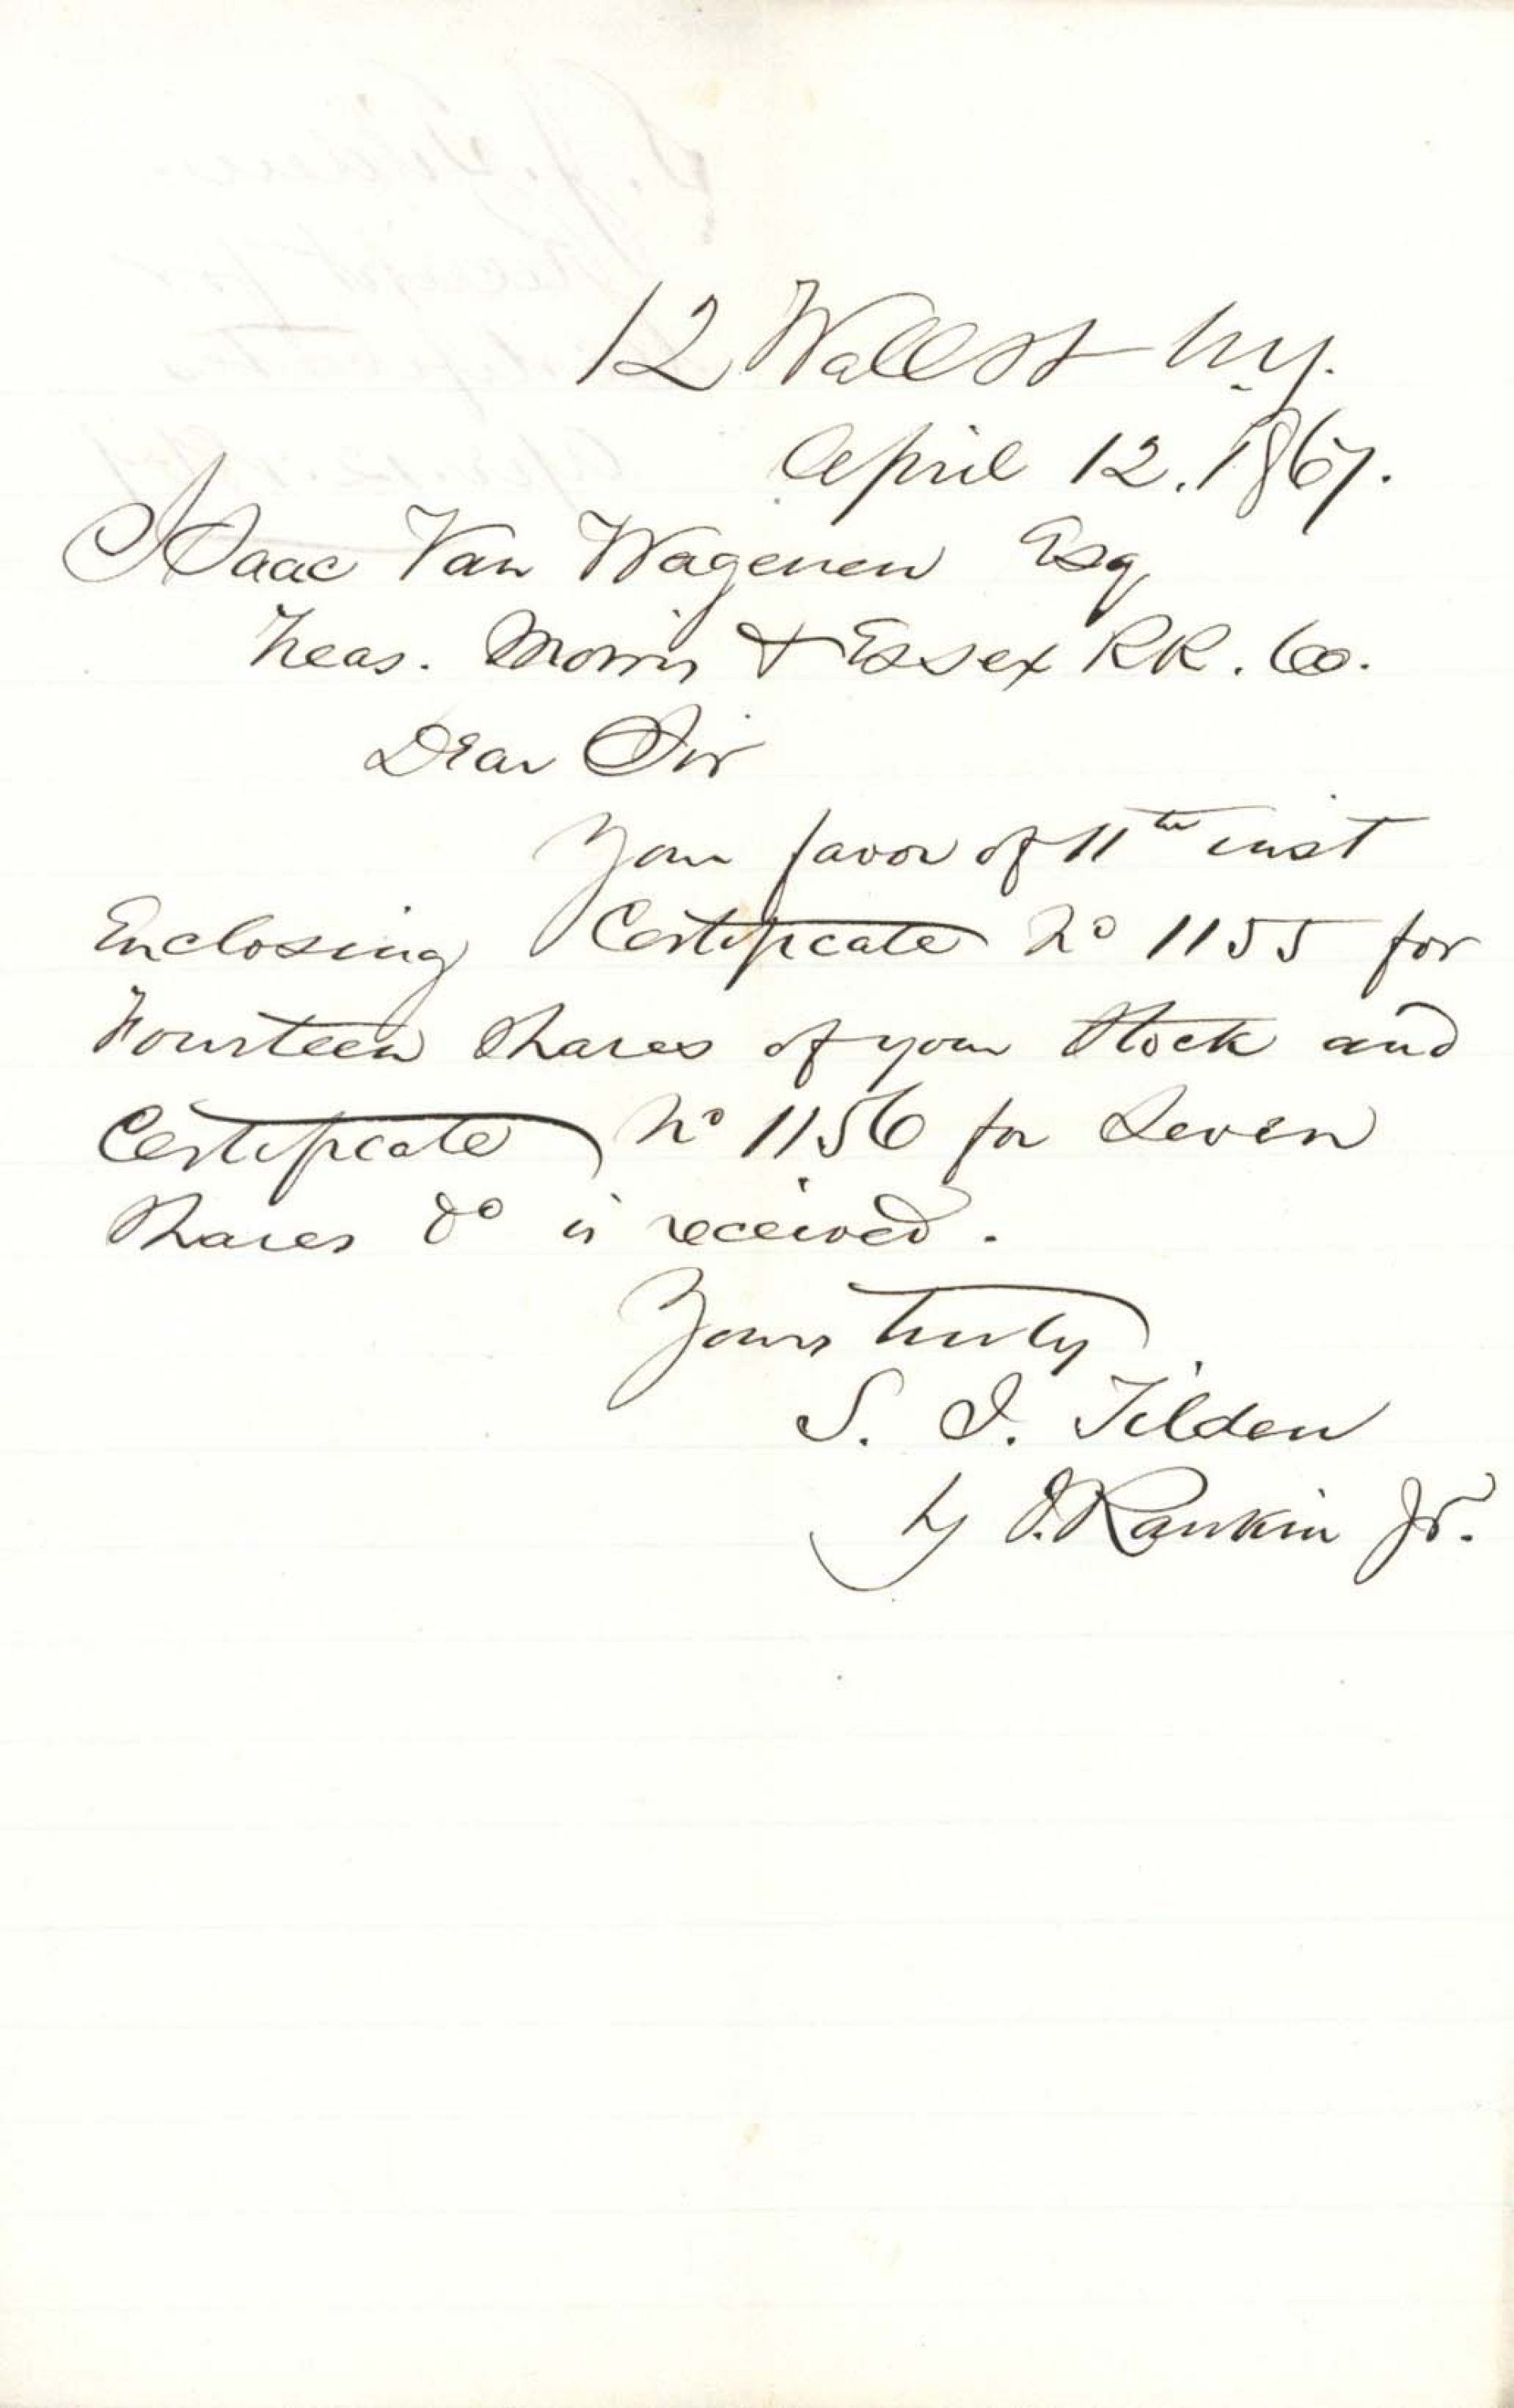 12 Wall St N.Y.
April 12. 1867.
Isaac Van Wagenen Esq
Treas. Morris & Essex RR. Co.
Dear Sir
Your favor of 11th inst
Enclosing Certificate No 1155 for
Fourteen Shares of your Stock and
Certificate No 1156 for Seven
Shares do is received.
Yours truly
S. J. Tilden
by J. Rankin Jr.